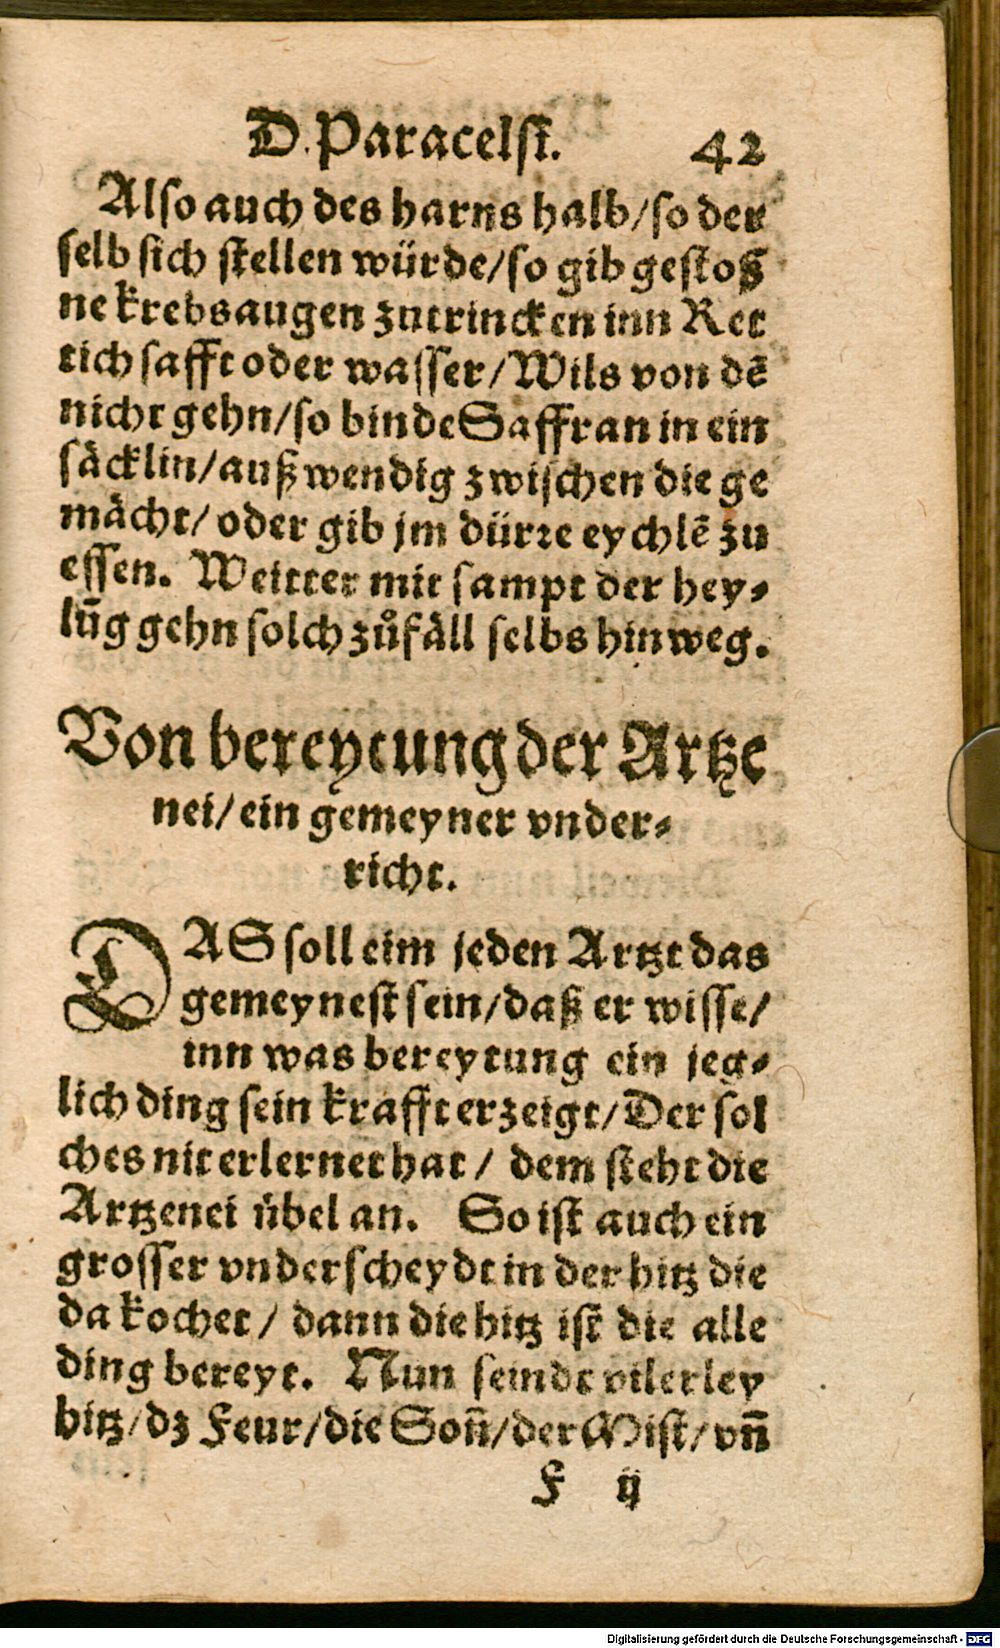 D. Paracelsi. 42
Also auch des harns halb/so der
selb sich stellen würde/so gib gestoß
ne krebsaugen zutrincken inn Ret
tich safft oder wasser/Wils von dẽ
nicht gehn/so binde Saffran in ein
säcklin/außwendig zwischen die ge
mächt/oder gib jm dürꝛe eychlẽ zu
essen. Weitter mit sampt der hey⸗
lũg gehn solch zůfäll selbs hinweg.
Von bereytung der Artze
nei/ein gemeyner vnder⸗
richt.
DAS soll eim jeden Artzt das
gemeynest sein/daß er wisse/
inn was bereytung ein jeg⸗
lich ding sein krafft erzeigt/Der sol
ches nit erlernet hat/ dem steht die
Artzenei übel an. So ist auch ein
grosser vnderscheydt in der hitz die
da kochet/ dann die hitz ist die alle
ding bereyt. Nun seindt vilerley
hitz/dz Feur/die Soñ/der Mist/vñ
F ij
Digitalisierung gefördert durch die Deutsche Forschungsgemeinschaft - DFG